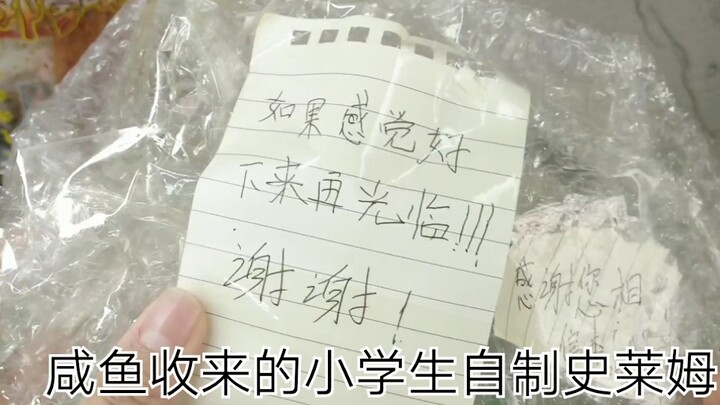 如果感觉好
下来再光临!!!
谢谢!
感谢您相
信
咸鱼收来的小学生自制史莱姆